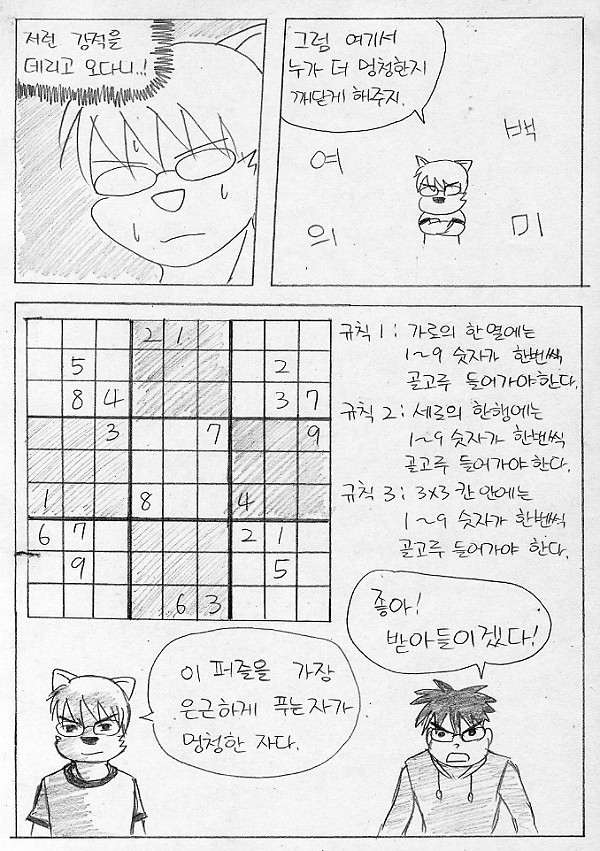 저런 강적을
데리고 오다니..!
그럼 여기서
누가 더 멍청한지
깨닫게 해주지.
여 백
의 미
2 1
5 2
8 4 3 7
3 7 9
1 8 4
6 7 2 1
9 5
6 3
규칙 1 : 가로의 한 열에는
1~9 숫자가 한번씩
골고루 들어가야한다.
규칙 2 : 세로의 한행에는
1~9 숫자가 한번씩
골고루 들어가야한다.
규칙 3 : 3x3 칸 안에는
1~9 숫자가 한번씩
골고루 들어가야 한다.
좋아!
받아들이겠다!
이 퍼즐을 가장
은근하게 푸는자가
멍청한 자다.